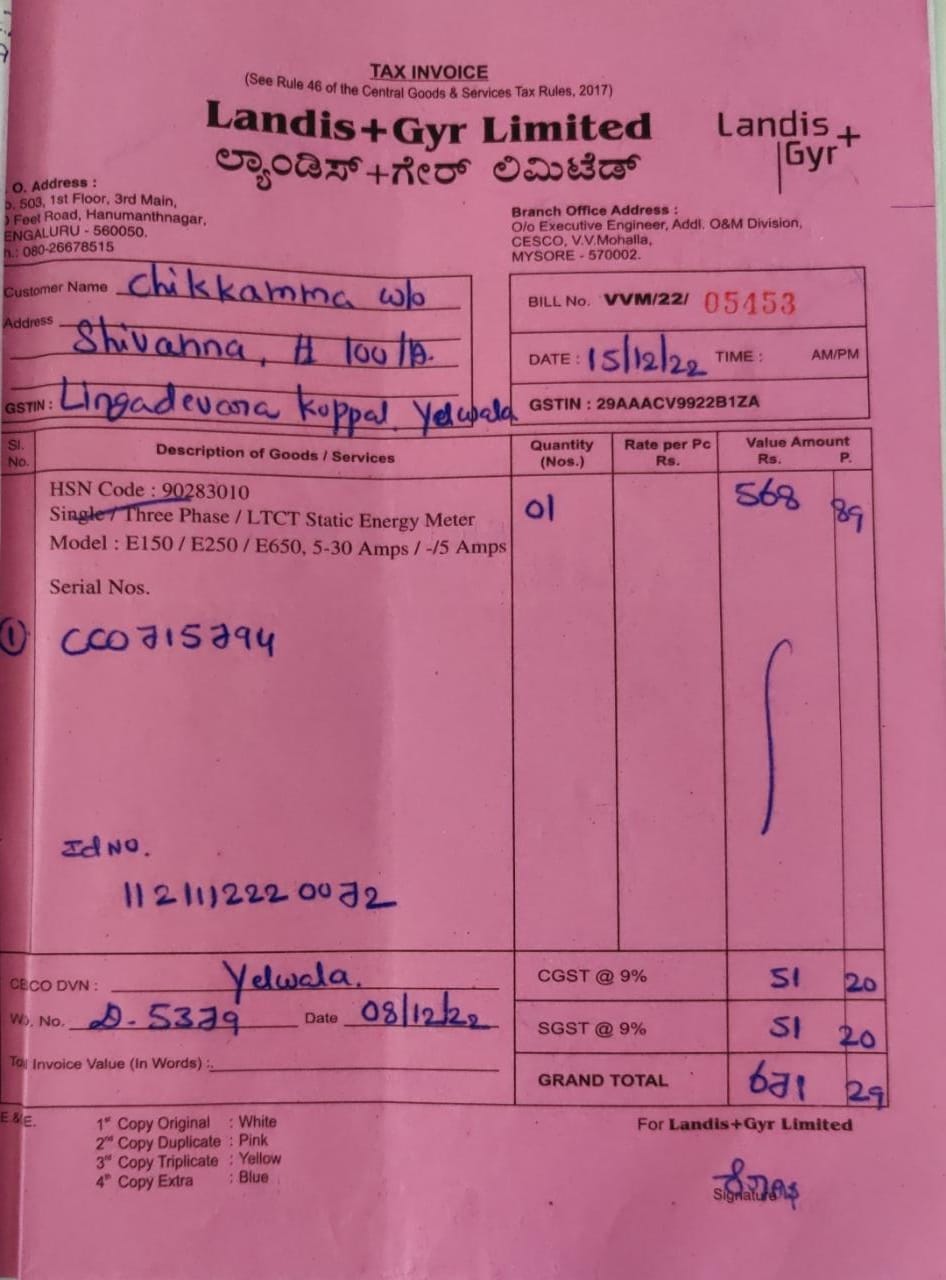 TAX INVOICE
(See Rule 46 of the Central Goods & Services Tax Rules, 2017)
Landis+Gyr Limited
ಲ್ಯಾಂಡಿಸ್+ಗೇರ್ ಲಿಮಿಟೆಡ್
Landis
Gyr+
O. Address :
503, 1st Floor, 3rd Main,
Feet Road, Hanumanthnagar,
ENGALURU - 560050.
080-26678515
Branch Office Address :
O/o Executive Engineer, Addl. O&M Division,
CESCO, V.V.Mohalla,
MYSORE - 570002.
Customer Name Chikkamma w/o
Address Shivanna, # 100/A.
GSTIN : Lingadevara Koppal. Yelwala
BILL No. VVM/22/ 05453
DATE : 15/12/22 TIME : AM/PM
GSTIN : 29AAACV9922B1ZA
Sl. No. Description of Goods / Services Quantity (Nos.) Rate per Pc Rs. Value Amount Rs. P.
HSN Code : 90283010
Single / Three Phase / LTCT Static Energy Meter 01 568 89
Model : E150 / E250 / E650, 5-30 Amps / -/5 Amps
Serial Nos.
1 CC0715794
Id NO.
112111222 0072
CECO DVN : Yelwala.
CGST @ 9% 51 20
W. No. D-5379 Date 08/12/22
SGST @ 9% 51 20
Invoice Value (In Words) :
GRAND TOTAL 671 29
E & E.
1st Copy Original : White
2nd Copy Duplicate : Pink
3rd Copy Triplicate : Yellow
4th Copy Extra : Blue
For Landis+Gyr Limited
Signature